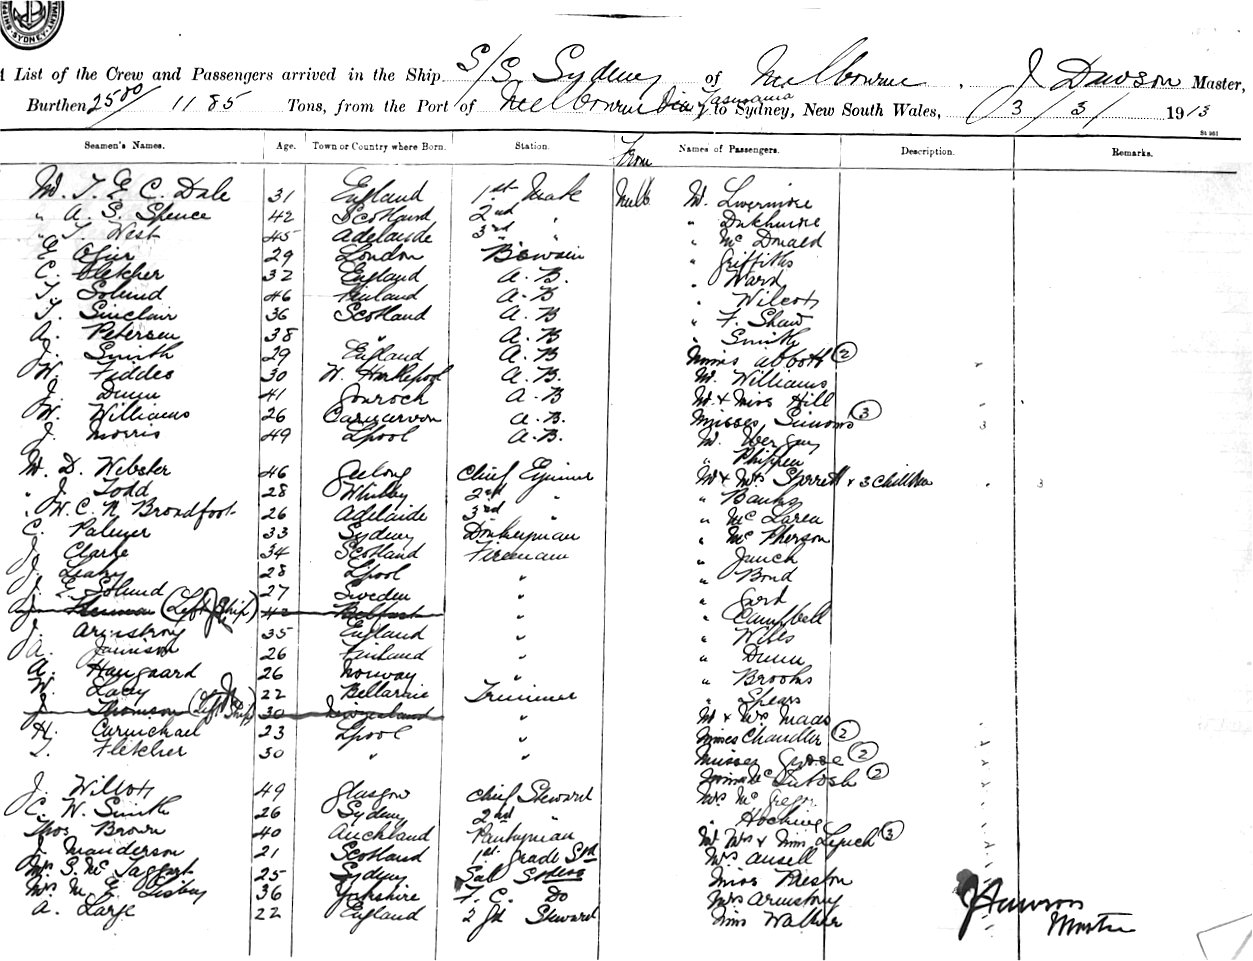 SYDNEY
A List of the Crew and Passengers arrived in the Ship S/S. Sydney of Melbourne, J Dawson Master,
Burthen 2500/1185 Tons, from the Port of Melbourne Via Tasmania to Sydney, New South Wales, 3/3/1913
St 961
Seamen's Names. Age. Town or Country where Born. Station. From Names of Passengers. Description. Remarks.
Mr. T. E. C. Dale 31 England 1st Mate Melb Mr. Livermore
" A. S. Spence 42 Scotland 2nd "
" T. West 45 Adelaide 3rd " " Mc Donald
E 29 London Bowsin " Griffiths
C. Fletcher 32 England A.B. " Ward
T. Solund 46 Finland A.B " Wilcox
T. Sinclair 36 Scotland A.B " F. Shaw
A. Petersen 38 " A.B " Smith
J. Smith 29 England A.B Misses Abbott (2)
W. Fiddes 30 W. Hartlepool A.B. Mr. Williams
J. Dunn 41 Gourock A.B Mr. & Miss Hill
W. Williams 26 Carnarvon A.B. Misses Simons (3)
J. Morris 49 Lpool A.B. Mr.
" Phippen
Mr. D. Webster 46 Geelong Chief Engineer Mr & Mrs Sperrett + 3 Children 3
" J. Todd 28 Whitby 2nd " " Banks
" W. C. N. Broadfoot 26 Adelaide 3rd " " Mc Laren
C. Palmer 33 Sydney Donkeyman " Mc Pherson
J. Clarke 34 Scotland Fireman "
J. Leahy 28 Lpool " " Bond
J. E. Solund 27 Sweden " " Gard
(Left Ship) 42 Belfast " " Campbell
J. Armstrong 35 England " " Wills
A. Jamison 26 Finland " " Dunn
A. Haugaard 26 Norway " " Brooks
W. Lacy 22 Bellarine Trimmer " Spears
J. Thomson (Left Ship) 30 " Mr & Mrs Maas
H. Carmichael 23 Lpool " Misses Chandler (2)
T. Fletcher 30 " " Misses Grose (2)
Misses McIntosh (2)
J. Willox 49 Glasgow Chief Steward Mrs McGregor
C. W. Smith 26 Sydney 2nd " " Hocking
Thos Brown 40 Auckland Pantryman Mr Mrs & Miss Lynch (3)
J. Manderson 21 Scotland 1st Grade Std Mrs Ansell
Mrs S. McTaggart 25 Sydney Sal Stdess Miss Preston
Mrs M. E. Lisbey 36 Yorkshire F. C. Do Mrs Armstrong
A. Large 22 England 2 Gd Steward Miss Walker
J Dawson
Master